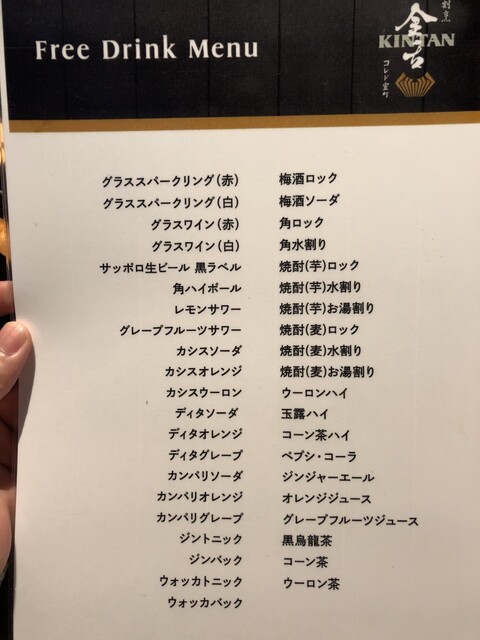 Free Drink Menu
割烹
金舌
KINTAN
コレド室町
グラススパークリング(赤)
グラススパークリング(白)
グラスワイン(赤)
グラスワイン(白)
サッポロ生ビール 黒ラベル
角ハイボール
レモンサワー
グレープフルーツサワー
カシスソーダ
カシスオレンジ
カシスウーロン
ディタソーダ
ディタオレンジ
ディタグレープ
カンパリソーダ
カンパリオレンジ
カンパリグレープ
ジントニック
ジンバック
ウォッカトニック
ウォッカバック
梅酒ロック
梅酒ソーダ
角ロック
角水割り
焼酎(芋)ロック
焼酎(芋)水割り
焼酎(芋)お湯割り
焼酎(麦)ロック
焼酎(麦)水割り
焼酎(麦)お湯割り
ウーロンハイ
玉露ハイ
コーン茶ハイ
ペプシ・コーラ
ジンジャーエール
オレンジジュース
グレープフルーツジュース
黒烏龍茶
コーン茶
ウーロン茶